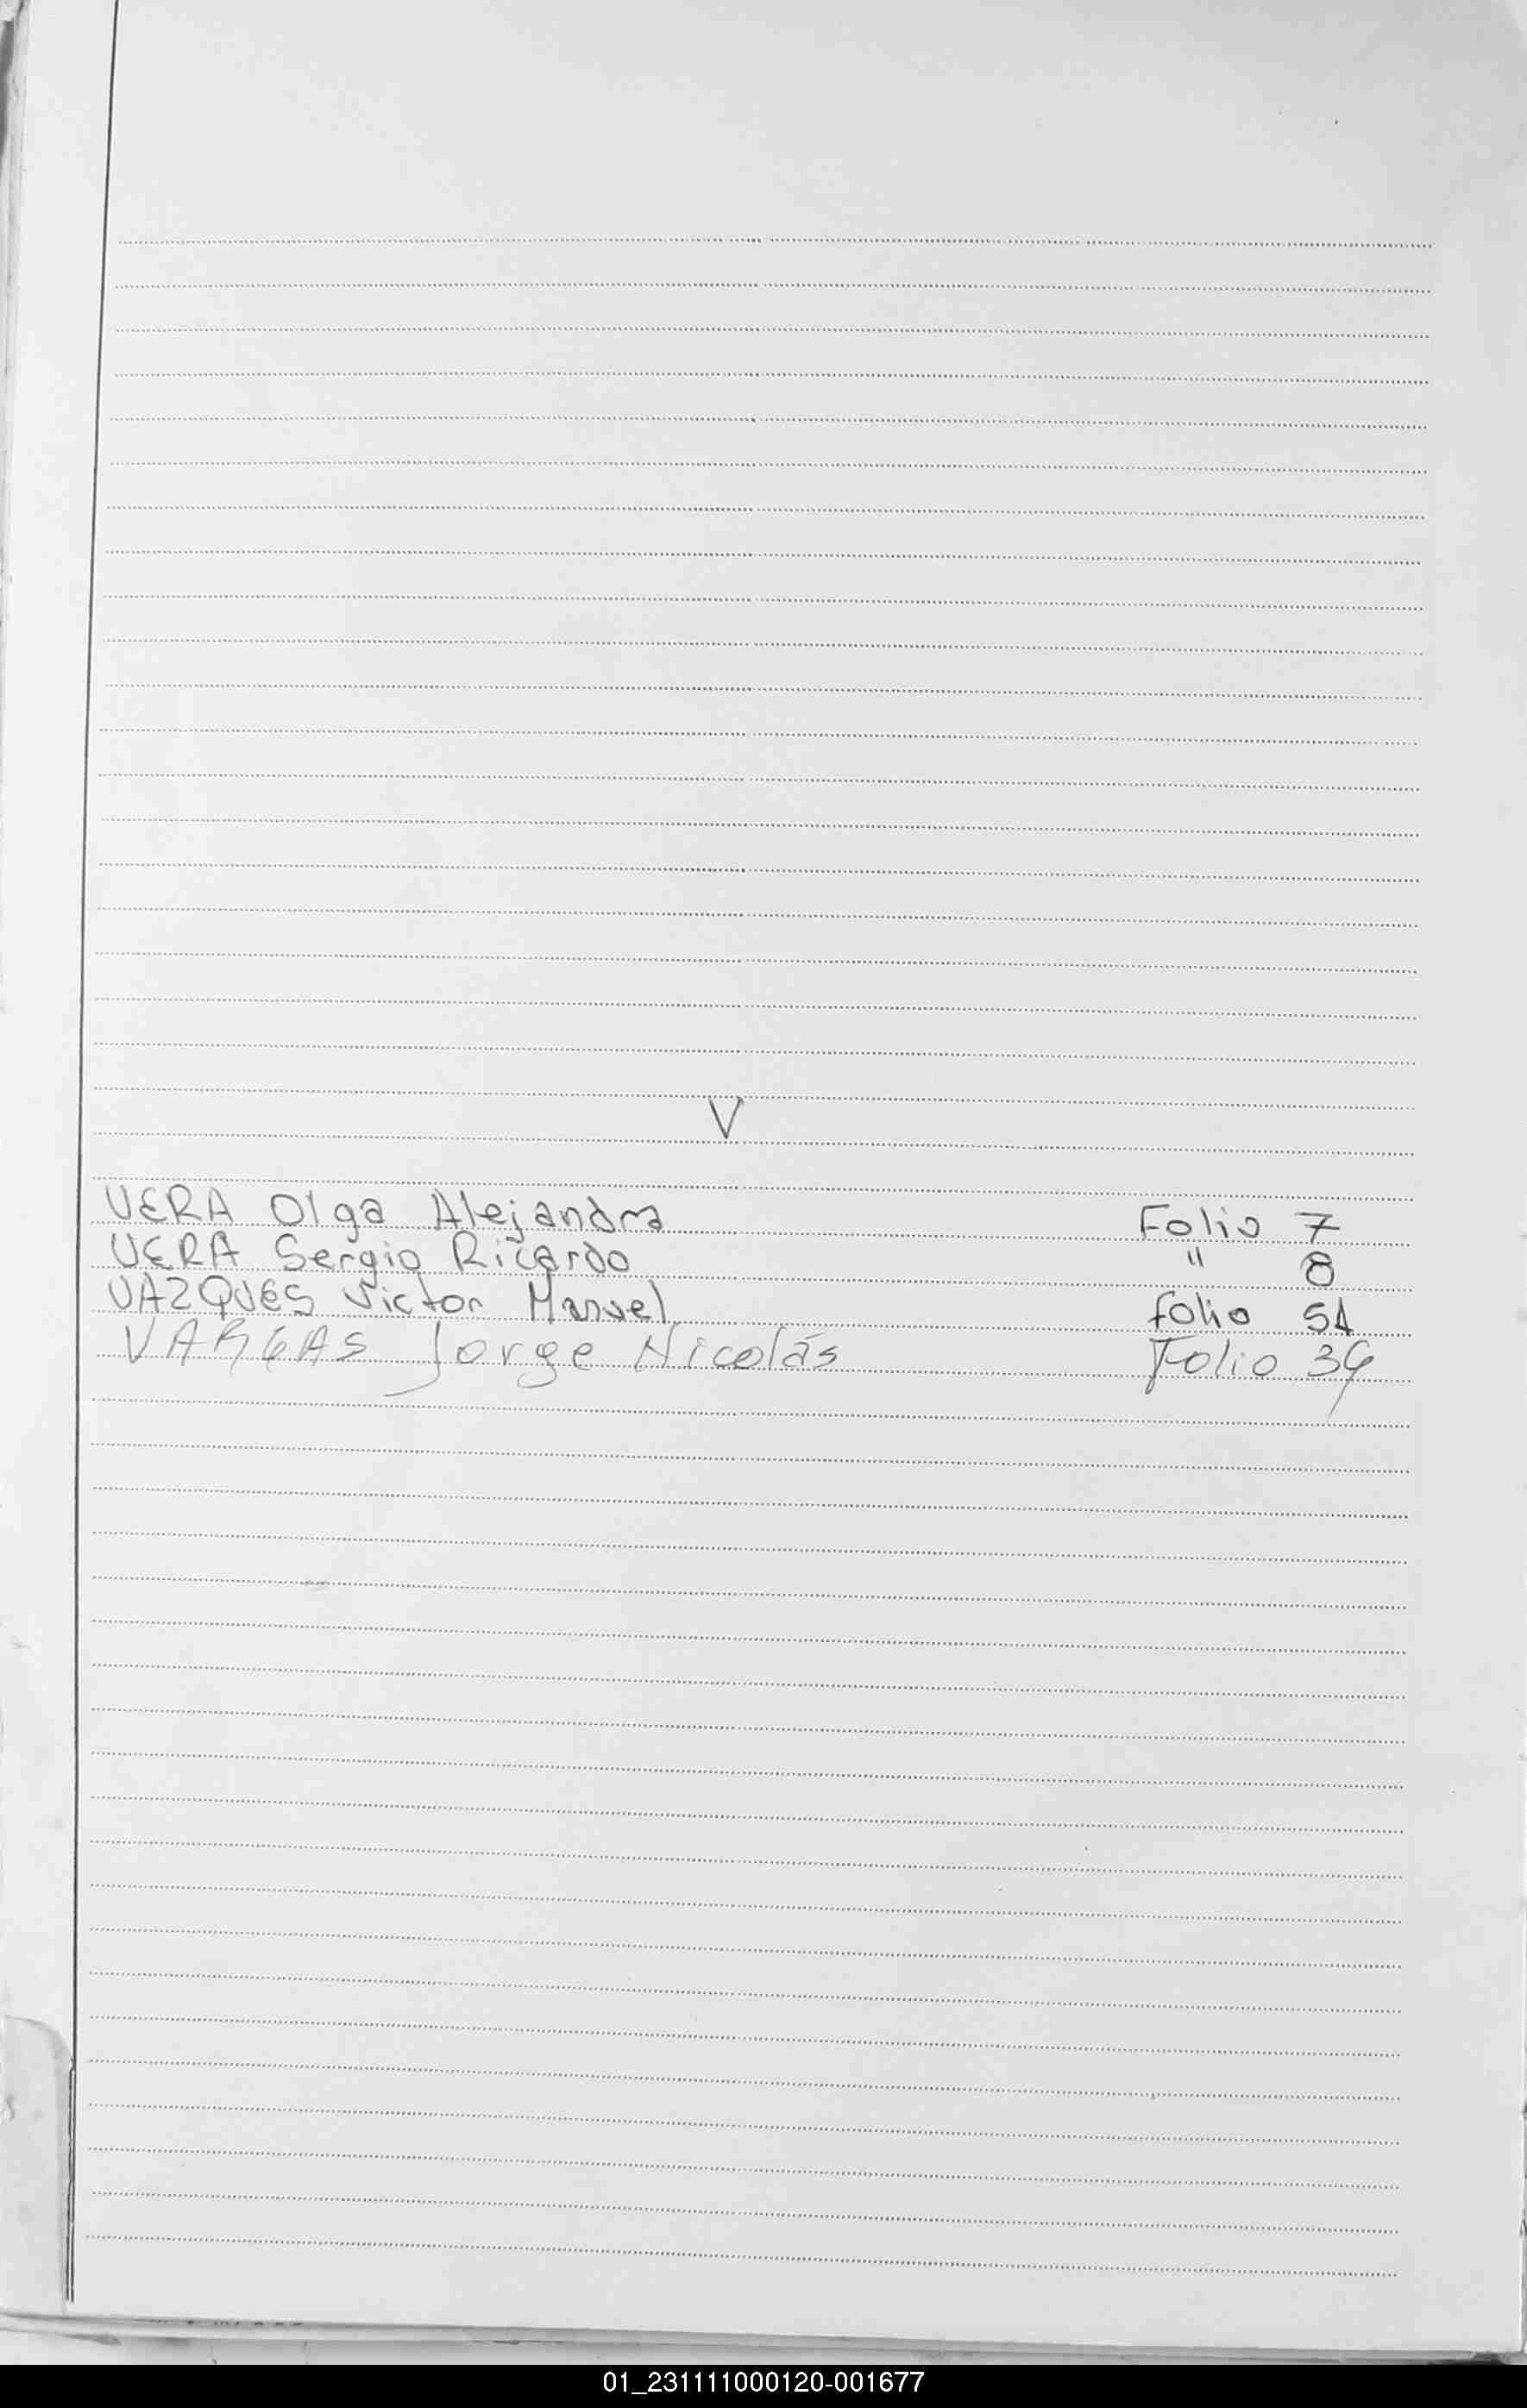 V
VERA Olga Alejandra Folio 7
VERA Sergio Ricardo " 8
VAZQUES Victor Manuel folio 51
VARGAS Jorge Nicolás Folio 39
01_231111000120-001677